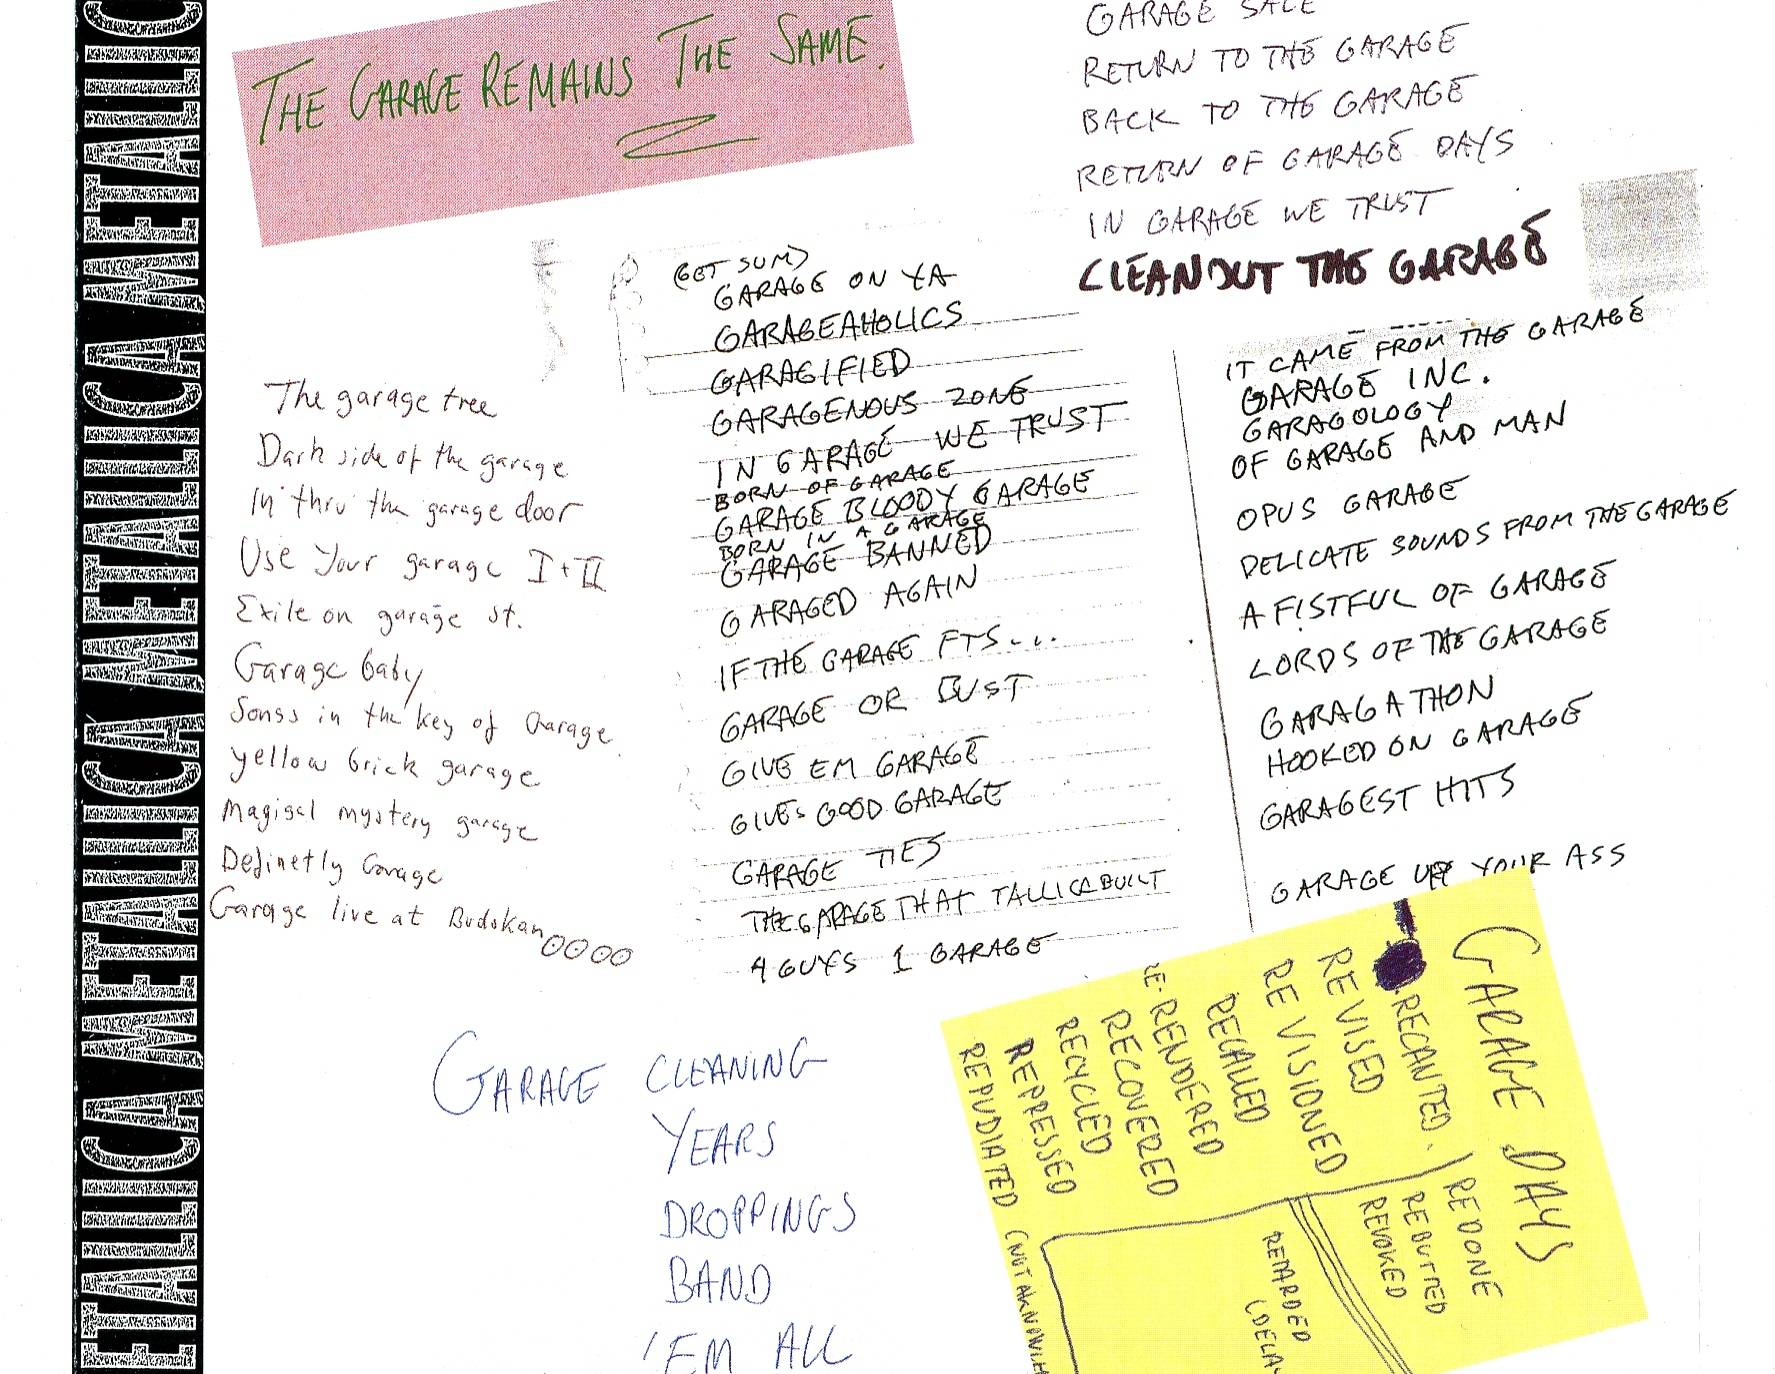 METALLICA METALLICA METALLICA METALLICA METALLICA
THE GARAGE REMAINS THE SAME.
GARAGE SALE
RETURN TO THE GARAGE
BACK TO THE GARAGE
RETURN OF GARAGE DAYS
IN GARAGE WE TRUST
CLEANOUT THE GARAGE
The garage tree
Dark side of the garage
In thru the garage door
Use Your garage I + II
Exile on garage st.
Garage baby
Songs in the key of Garage
yellow brick garage
Magical mystery garage
Definetly Garage
Garage live at Budokan
(GET SUM)
GARAGE ON YA
GARAGEAHOLICS
GARAGIFIED
GARAGENOUS ZONE
IN GARAGE WE TRUST
BORN OF GARAGE
GARAGE BLOODY GARAGE
BORN IN A GARAGE
GARAGE BANNED
GARAGED AGAIN
IF THE GARAGE FTS...
GARAGE OR BUST
GIVE EM GARAGE
GIVES GOOD GARAGE
GARAGE TIES
THE GARAGE THAT TALLICA BUILT
4 GUYS 1 GARAGE
IT CAME FROM THE GARAGE
GARAGE INC.
GARAGOLOGY
OF GARAGE AND MAN
OPUS GARAGE
DELICATE SOUNDS FROM THE GARAGE
A FISTFUL OF GARAGE
LORDS OF THE GARAGE
GARAGATHON
HOOKED ON GARAGE
GARAGEST HITS
GARAGE UP YOUR ASS
GARAGE CLEANING
YEARS
DROPPINGS
BAND
'EM ALL
GARAGE DAYS
RECANTED.) REDONE
REVISED REBUTTED
REVISIONED REVOKED
RECALLED
RE-RENDERED
RECOVERED
RECYCLED
REPRESSED
REPUDIATED (NOT AKNOWL
RETARDED
(DELAY